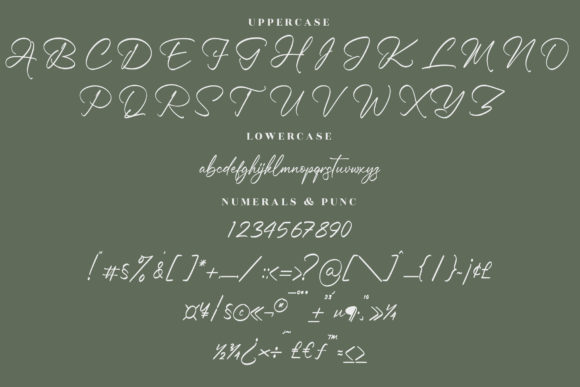 UPPERCASE
ABCDEFGHIJKLMNO
PQRSTUVWXYZ
LOWERCASE
abcdefghijklmnopqrstuvwxyz
NUMERALS & PUNC
1234567890
!"#$%&'[]*+,-./:;<=>?@[\]^_{|}~¡¢£
¤¥/§©«¬®¯°±²³´µ¶·¸¹º»¼
½¾¿×÷ˆ˜£€ƒ™≈≤≥